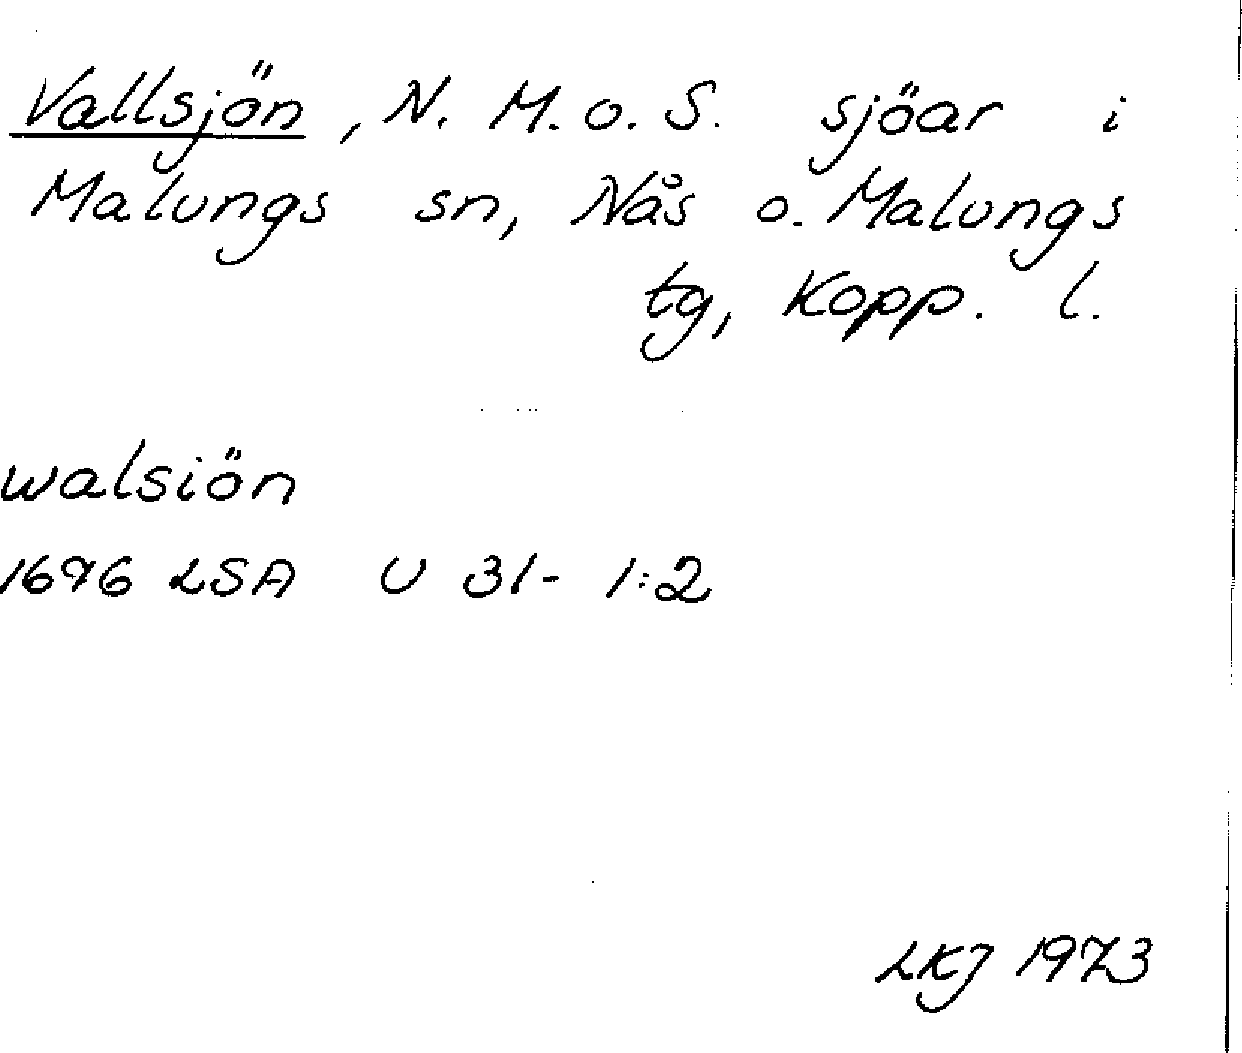 Vallsjön, N. M. o. S. sjöar i
Malungs sn, Nås o. Malungs
tg, Kopp. l.
walsiön
1696 LSA U 31- 1:2
LKJ 1973